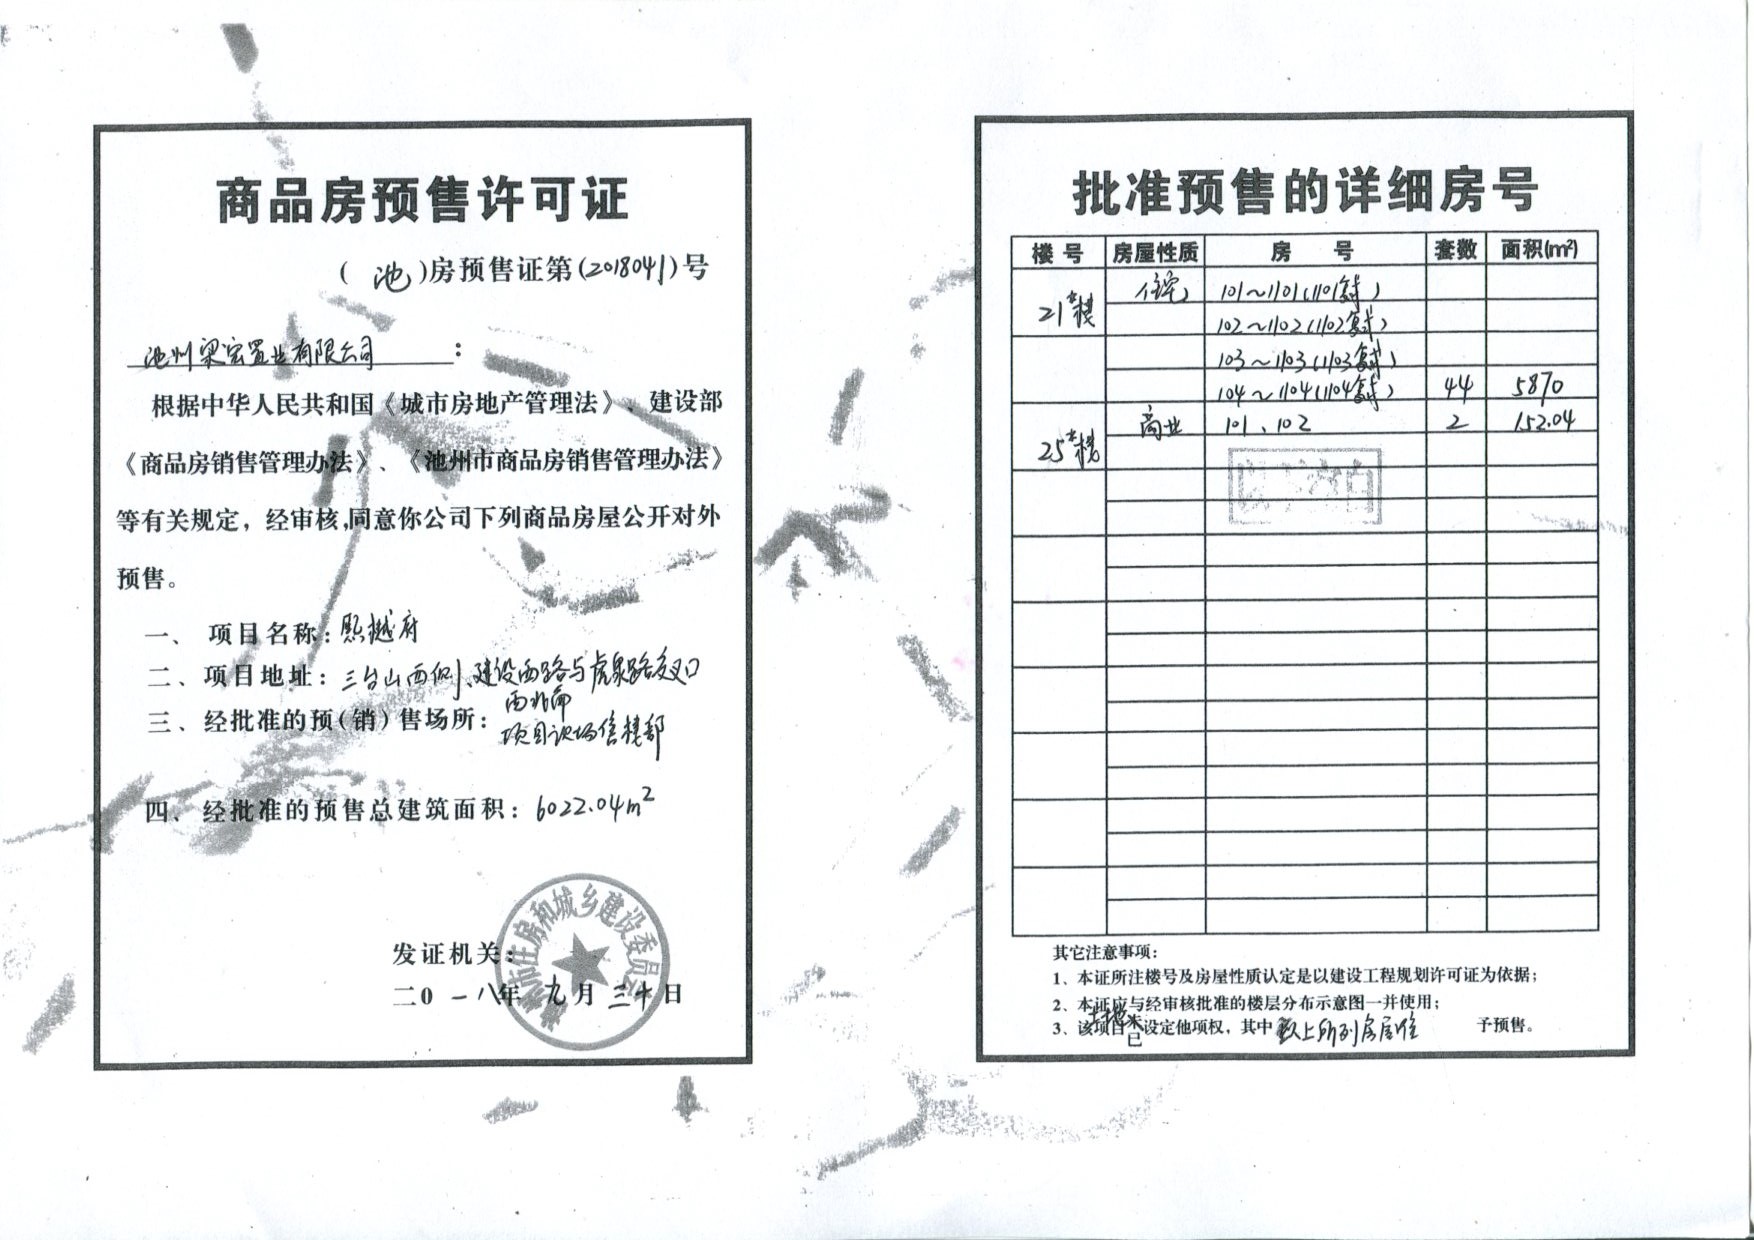 商品房预售许可证
(池)房预售证第(2018041)号
池州梁宏置业有限公司:
根据中华人民共和国《城市房地产管理法》、建设部
《商品房销售管理办法》、《池州市商品房销售管理办法》
等有关规定，经审核,同意你公司下列商品房屋公开对外
预售。
一、项目名称:熙樾府
二、项目地址:三台山西侧、建设西路与虎泉路交叉口
西北角
三、经批准的预(销)售场所:项目现场售楼部
四、经批准的预售总建筑面积:6022.04m²
发证机关:
二0一八年九月三十日
市住房和城乡建设委员会
批准预售的详细房号
楼号 房屋性质 房号 套数 面积(m²)
21#楼 住宅 101~1101(1101复式)
102~1102(1102复式)
103~1103(1103复式)
104~1104(1104复式) 44 5870
25#楼 商业 101、102 2 152.04
以下空白
其它注意事项:
1、本证所注楼号及房屋性质认定是以建设工程规划许可证为依据;
2、本证应与经审核批准的楼层分布示意图一并使用;
3、该项目土地未已设定他项权，其中以上所列房屋准予预售。